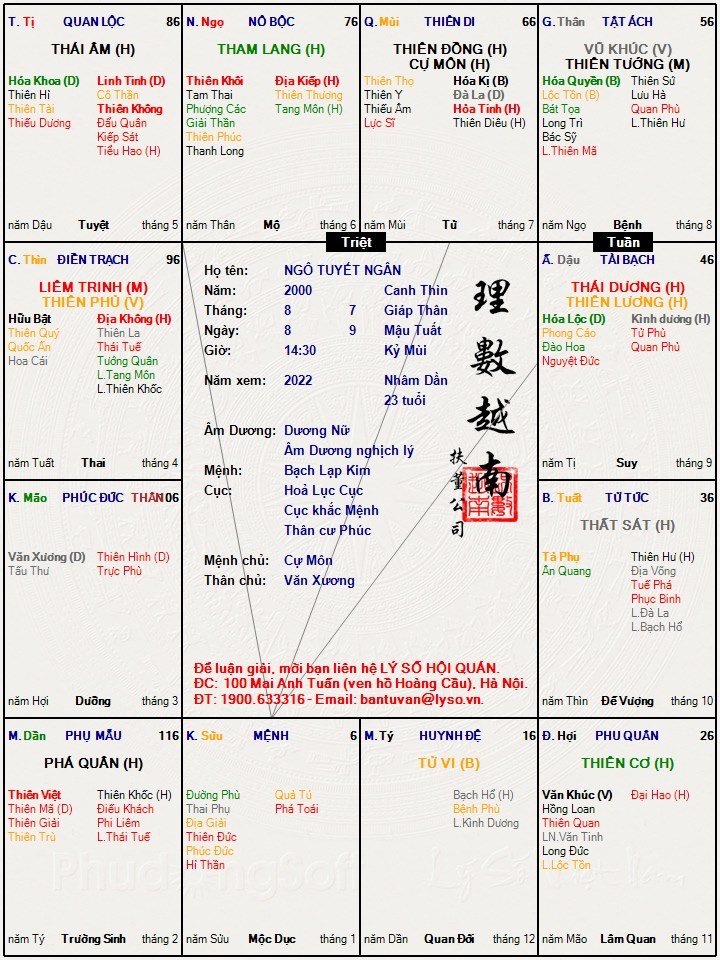 T. Tị QUAN LỘC 86
THÁI ÂM (H)
Hóa Khoa (D) Linh Tinh (D)
Thiên Hỉ Cô Thần
Thiên Tài Thiên Không
Thiếu Dương Đẩu Quân
Kiếp Sát
Tiểu Hao (H)
năm Dậu Tuyệt tháng 5
N. Ngọ NÔ BỘC 76
THAM LANG (H)
Thiên Khôi Địa Kiếp (H)
Tam Thai Thiên Thương
Phượng Các Tang Môn (H)
Giải Thần
Thiên Phúc
Thanh Long
năm Thân Mộ tháng 6
Q. Mùi THIÊN DI 66
THIÊN ĐỒNG (H)
CỰ MÔN (H)
Thiên Thọ Hóa Kị (B)
Thiên Y Đà La (D)
Thiếu Âm Hỏa Tinh (H)
Lực Sĩ Thiên Diêu (H)
năm Mùi Tử tháng 7
G. Thân TẬT ÁCH 56
VŨ KHÚC (V)
THIÊN TƯỚNG (M)
Hóa Quyền (B) Thiên Sứ
Lộc Tồn (B) Lưu Hà
Bát Tọa Quan Phù
Long Trì L.Thiên Hư
Bác Sỹ
L.Thiên Mã
năm Ngọ Bệnh tháng 8
Triệt
Tuần
C. Thìn ĐIỀN TRẠCH 96
LIÊM TRINH (M)
THIÊN PHỦ (V)
Hữu Bật Địa Không (H)
Thiên Quý Thiên La
Quốc Ấn Thái Tuế
Hoa Cái Tướng Quân
L.Tang Môn
L.Thiên Khốc
năm Tuất Thai tháng 4
Họ tên: NGÔ TUYẾT NGÂN
Năm: 2000 Canh Thìn
Tháng: 8 7 Giáp Thân
Ngày: 8 9 Mậu Tuất
Giờ: 14:30 Kỷ Mùi
Năm xem: 2022 Nhâm Dần
23 tuổi
Âm Dương: Dương Nữ
Âm Dương nghịch lý
Mệnh: Bạch Lạp Kim
Cục: Hoả Lục Cục
Cục khắc Mệnh
Thân cư Phúc
Mệnh chủ: Cự Môn
Thân chủ: Văn Xương
理
數
越
南
扶
董
公
司
Để luận giải, mời bạn liên hệ LÝ SỐ HỘI QUÁN.
ĐC: 100 Mai Anh Tuấn (ven hồ Hoàng Cầu), Hà Nội.
ĐT: 1900.633316 - Email: bantuvan@lyso.vn.
Ấ. Dậu TÀI BẠCH 46
THÁI DƯƠNG (H)
THIÊN LƯƠNG (H)
Hóa Lộc (D) Kình dương (H)
Phong Cáo Tử Phù
Đào Hoa Quan Phủ
Nguyệt Đức
năm Tị Suy tháng 9
K. Mão PHÚC ĐỨC THÂN 106
Văn Xương (D) Thiên Hình (D)
Tấu Thư Trực Phù
năm Hợi Dưỡng tháng 3
B. Tuất TỬ TỨC 36
THẤT SÁT (H)
Tả Phụ Thiên Hư (H)
Ân Quang Địa Võng
Tuế Phá
Phục Binh
L.Đà La
L.Bạch Hổ
năm Thìn Đế Vượng tháng 10
M. Dần PHỤ MẪU 116
PHÁ QUÂN (H)
Thiên Việt Thiên Khốc (H)
Thiên Mã (D) Điếu Khách
Thiên Giải Phi Liêm
Thiên Trù L.Thái Tuế
năm Tý Trường Sinh tháng 2
K. Sửu MỆNH 6
Đường Phù Quả Tú
Thai Phụ Phá Toái
Địa Giải
Thiên Đức
Phúc Đức
Hỉ Thần
năm Sửu Mộc Dục tháng 1
M. Tý HUYNH ĐỆ 16
TỬ VI (B)
Bạch Hổ (H)
Bệnh Phù
L.Kình Dương
năm Dần Quan Đới tháng 12
Đ. Hợi PHU QUÂN 26
THIÊN CƠ (H)
Văn Khúc (V) Đại Hao (H)
Hồng Loan
Thiên Quan
LN.Văn Tinh
Long Đức
L.Lộc Tồn
năm Mão Lâm Quan tháng 11